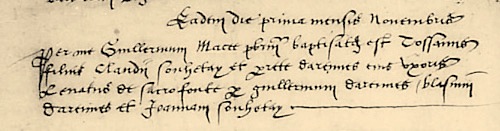 Eadem die prima mensis Novembris
Per me Guillermum Macee pbrm baptisatus est Tossanus
filius Claudii Sonhetay et Perrete daremes eius uxoris
Levatus de sacro fonte p guillermum daremes blasium
daremes et Joannam Sonhetay